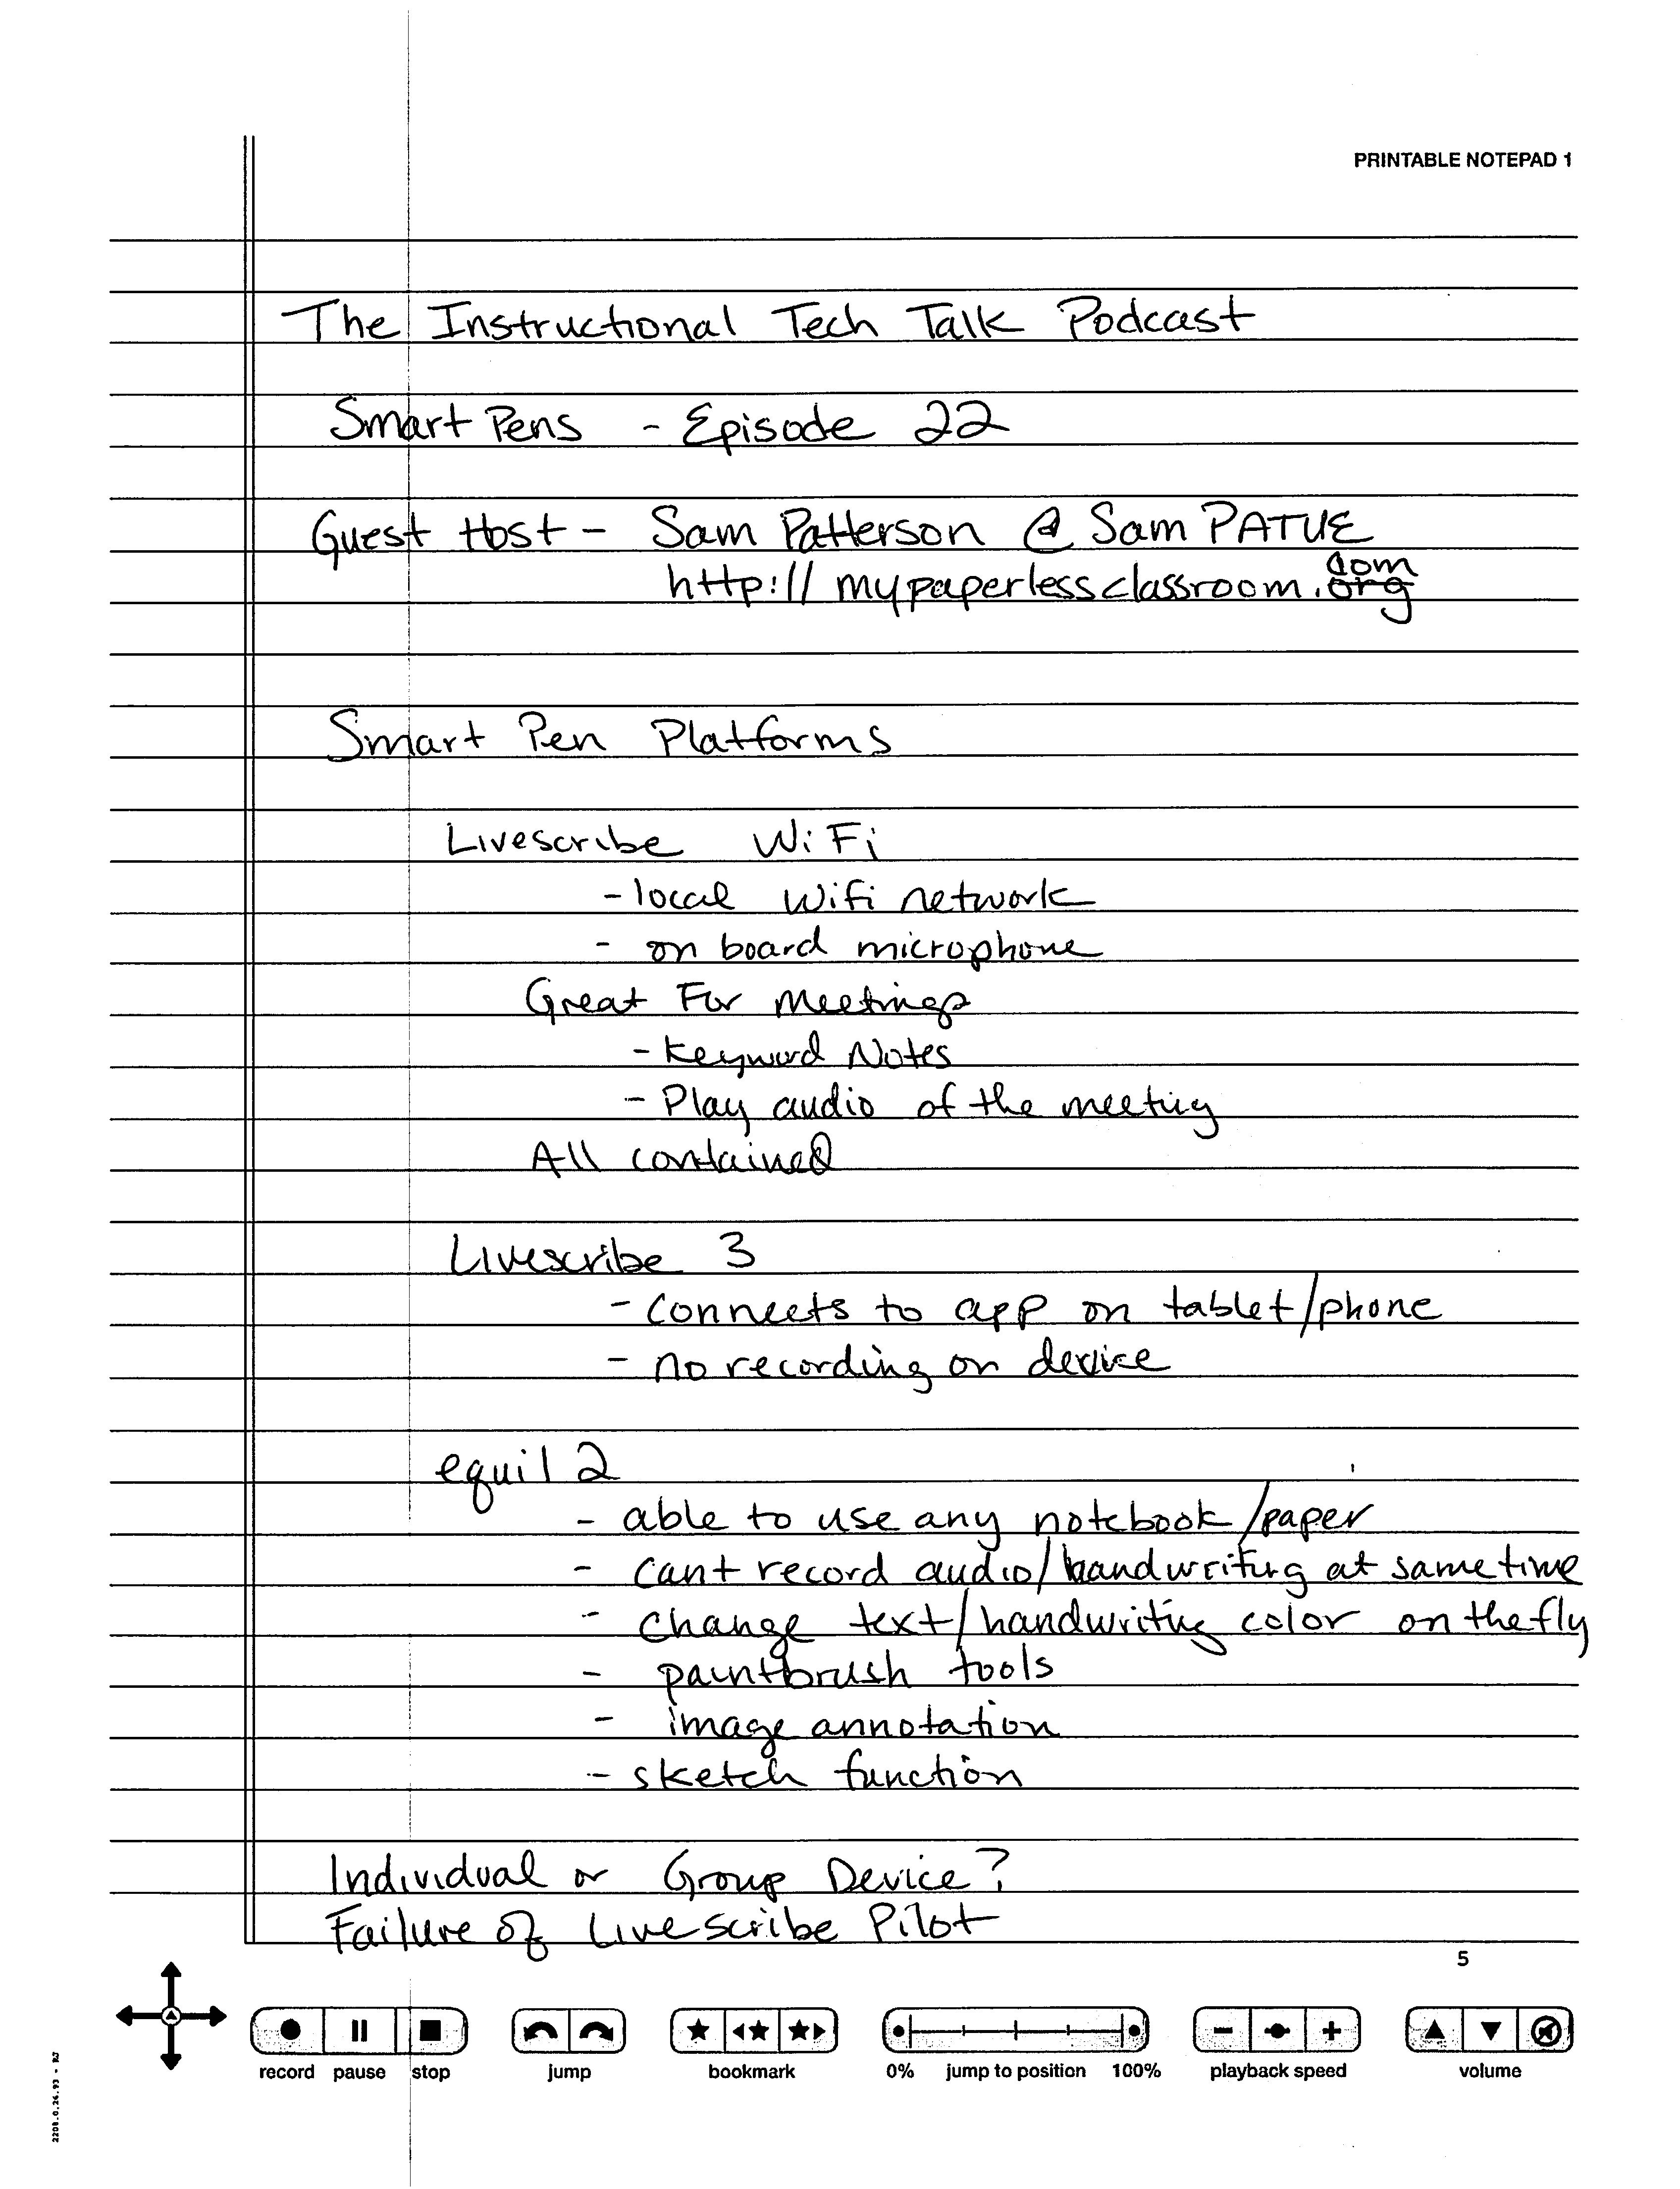 PRINTABLE NOTEPAD 1
The Instructional Tech Talk Podcast
Smart Pens - Episode 22
Guest Host - Sam Patterson @ Sam PATUE
com
http://mypaperlessclassroom.org
Smart Pen Platforms
Livescribe WiFi
- local Wifi network
- on board microphone
Great For Meetings
- Keyword Notes
- Play audio of the meeting
All contained
Livescribe 3
- connects to app on tablet/phone
- no recording on device
equil 2
- able to use any notebook/paper
- cant record audio/handwriting at same time
- change text/handwriting color on the fly
- paintbrush tools
- image annotation
- sketch function
Individual or Group Device?
Failure of Livescribe Pilot
5
record pause stop jump bookmark 0% jump to position 100% playback speed volume